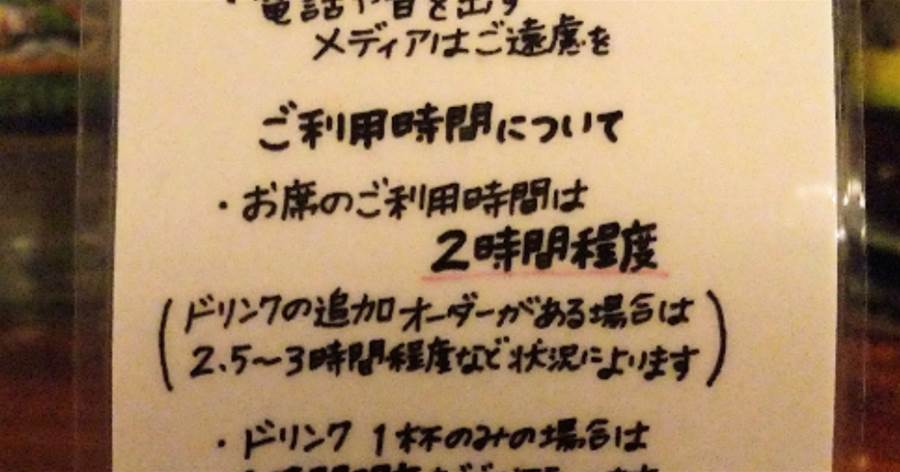 ・電話や音を出す
メディアはご遠慮を
ご利用時間について
・お席のご利用時間は
2時間程度
(ドリンクの追加オーダーがある場合は
2.5〜3時間程度など状況によります)
・ドリンク 1杯のみの場合は